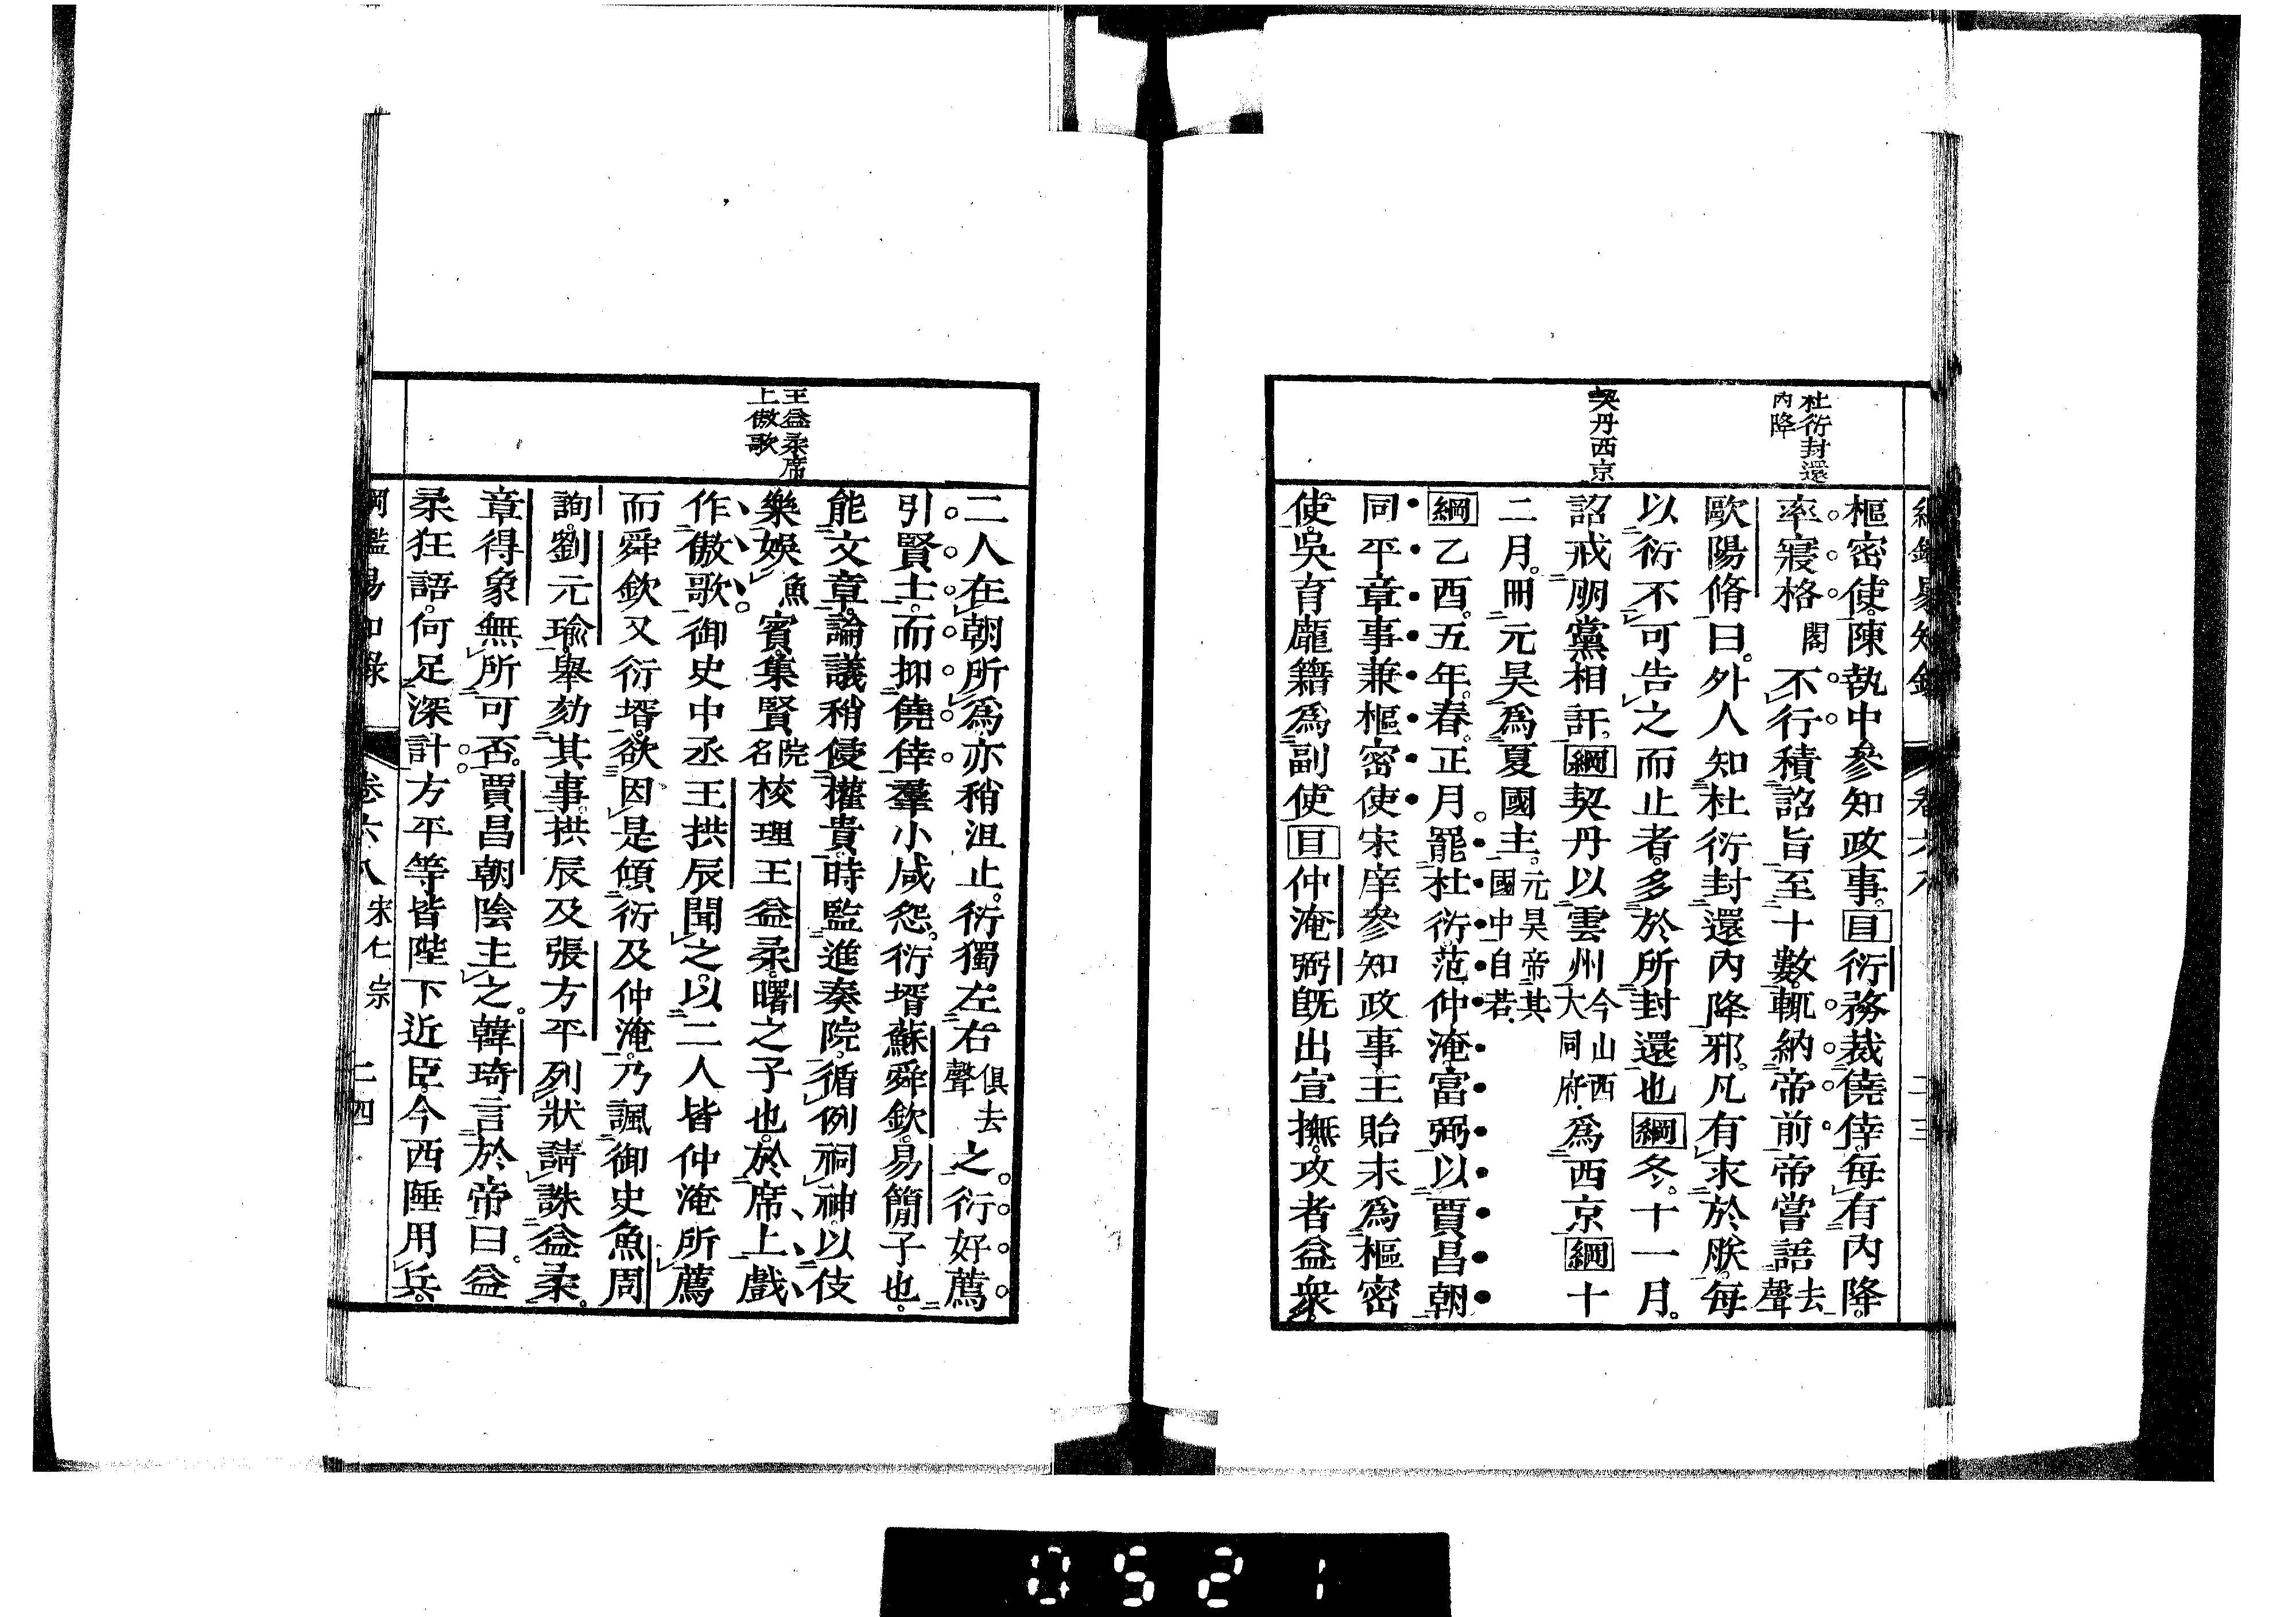 綱鑑易知錄 卷六八 二三
杜衍封還
內降
契丹西京
樞密使陳執中參知政事。目衍務裁僥倖每有內降。
率寢格閣不行積詔旨至十數輒納帝前帝嘗語去聲
歐陽脩曰。外人知杜衍封還內降邪。凡有求於朕每
以衍不可告之而止者。多於所封還也綱冬。十一月。
詔戒朋黨相訐。綱契丹以雲州今山西大同府。爲西京綱十
二月。冊元昊爲夏國主。元昊帝其國中自若。
綱乙酉。五年。春。正月。罷杜衍。范仲淹富弼以賈昌朝
同平章事兼樞密使宋庠參知政事王貽末爲樞密
使。吳育龐籍爲副使目仲淹弼旣出宣撫。攻者益衆。
王益柔席
上傲歌
二人在朝所爲亦稍沮止。衍獨左右俱去聲之衍好薦
引賢士。而抑僥倖羣小咸怨。衍壻蘇舜欽。易簡子也。
能文章。論議稍侵權貴時監進奏院。循例祠神以伎
樂娛魚賓。集賢院名校理王益柔。曙之子也。於席上戲
作傲歌。御史中丞王拱辰聞之。以二人皆仲淹所薦
而舜欽又衍壻。欲因是傾衍及仲淹。乃諷御史魚周
詢。劉元瑜。舉劾其事。拱辰及張方平列狀請誅益柔。
章得象無所可否。賈昌朝陰主之。韓琦言於帝曰。益
柔狂語。何足深計方平等皆陛下近臣。今西陲用兵。
綱鑑易知錄 卷六八 宋仁宗 二四
0521